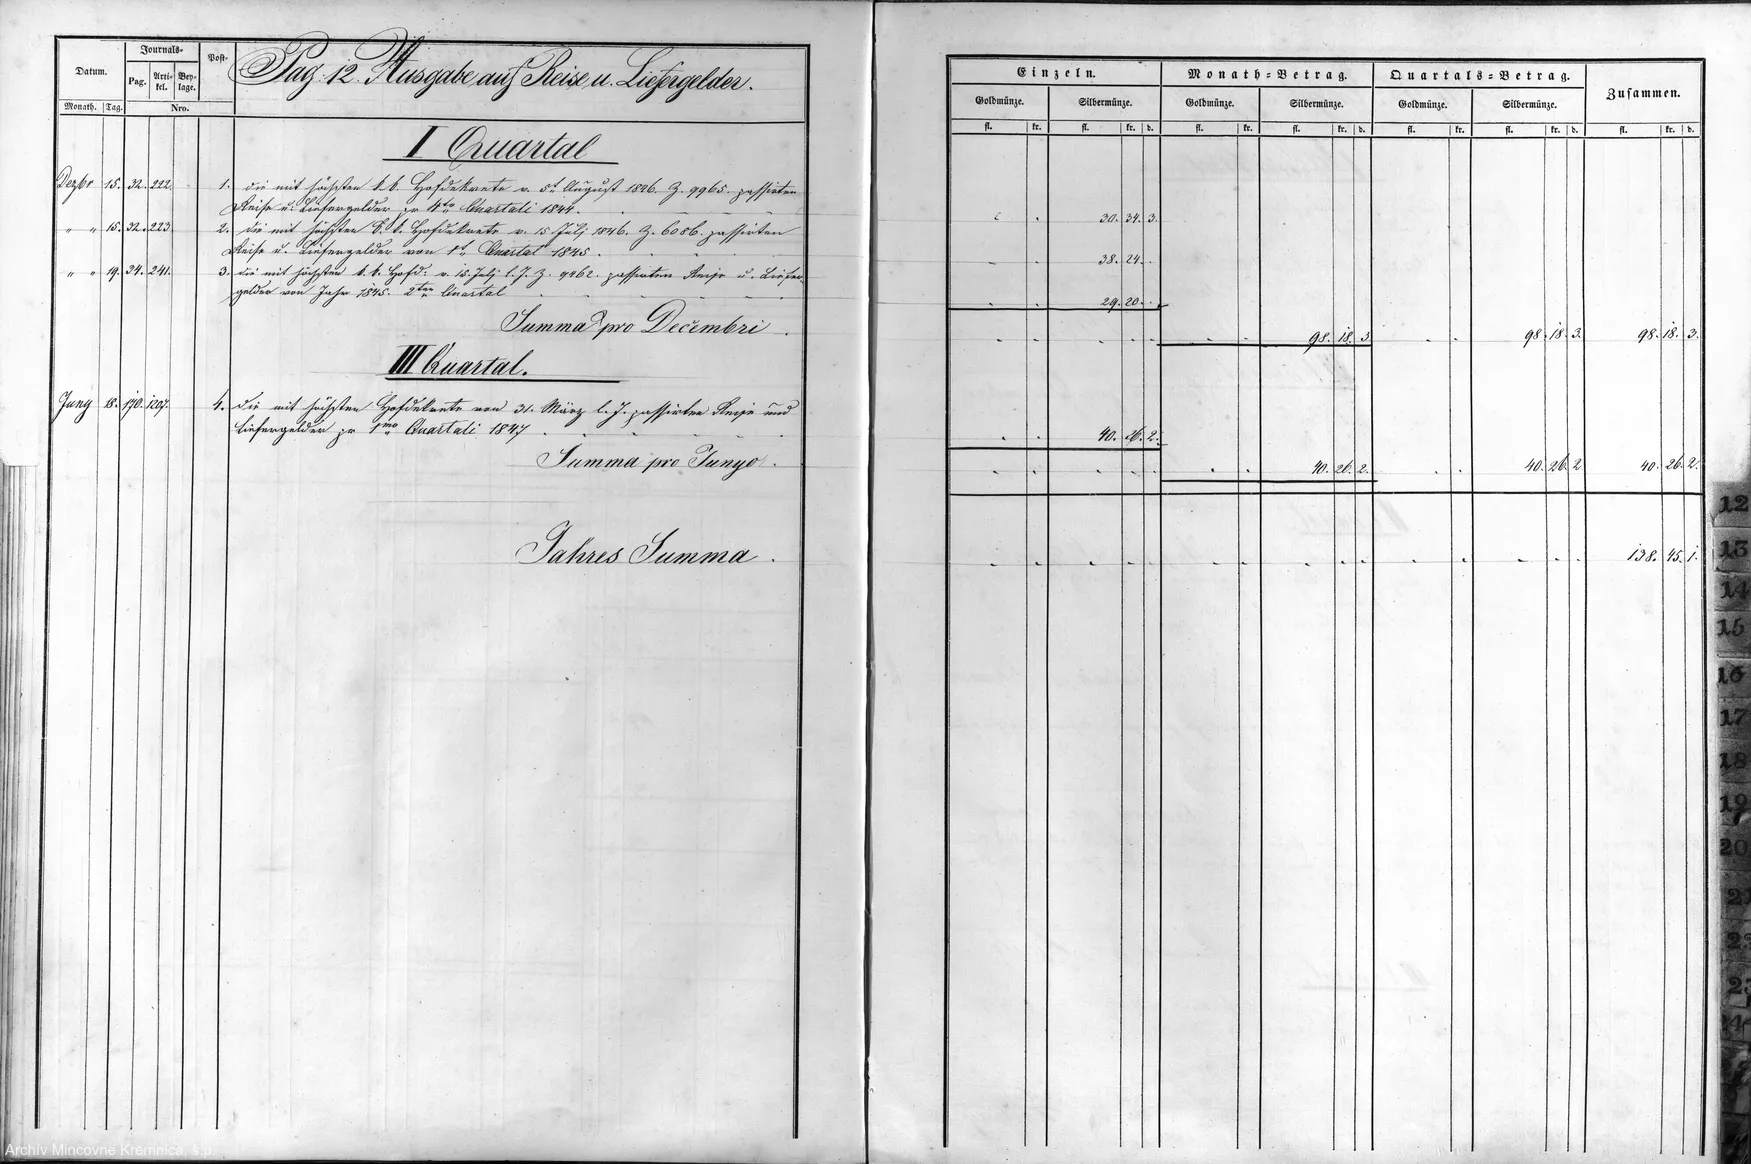 Datum.
Journals=
Post=
Pag.
Arti-
kel.
Bey-
lage.
Monath.
Tag.
Nro.
Pag: 12. Ausgabe auf Reise u. Liefergelder.
I Quartal
Dezbr 15. 32. 222. 1. die mit höchsten k. k. Hofdekrete v. 5t August 1846. Z. 9965. passirten
Reise u. Liefergelder pr 4to Quartali 1844.
" " 15. 32. 223 2. die mit höchsten k. k. Hofdekrete v. 15 Julj 1846. Z. 6086. passirten
Reise u. Liefergelder von 1t Quartal 1845.
" " 19. 34. 241. 3. die mit höchsten k. k. Hofd: v. 15. Julj l. J. Z. 9962. passirten Reise u. Liefer-
gelder von Jahr 1845. 2ten Quartal
Summa pro Decembri.
III Quartal.
Juny 18. 170. 1207. 4. die mit höchsten Hofdekrete von 31. März l. J. passirten Reise und
Liefergelder pr 1mo Quartali 1847
Summa pro Junyo.
Jahres Summa.
Einzeln.
Monath=Betrag.
Quartals=Betrag.
Zusammen.
Goldmünze. Silbermünze. Goldmünze. Silbermünze. Goldmünze. Silbermünze.
fl. kr. fl. kr. d. fl. kr. fl. kr. d. fl. kr. fl. kr. d. fl. kr. d.
30. 34. 3.
38. 24.
29. 20.
98. 18. 3 98. 18. 3. 98. 18. 3.
40. 26. 2.
40. 26. 2. 40. 26. 2 40. 26. 2.
138. 45. 1.
12
13
14
15
16
17
18
19
20
21
23
24
Archív Mincovne Kremnica, š.p.